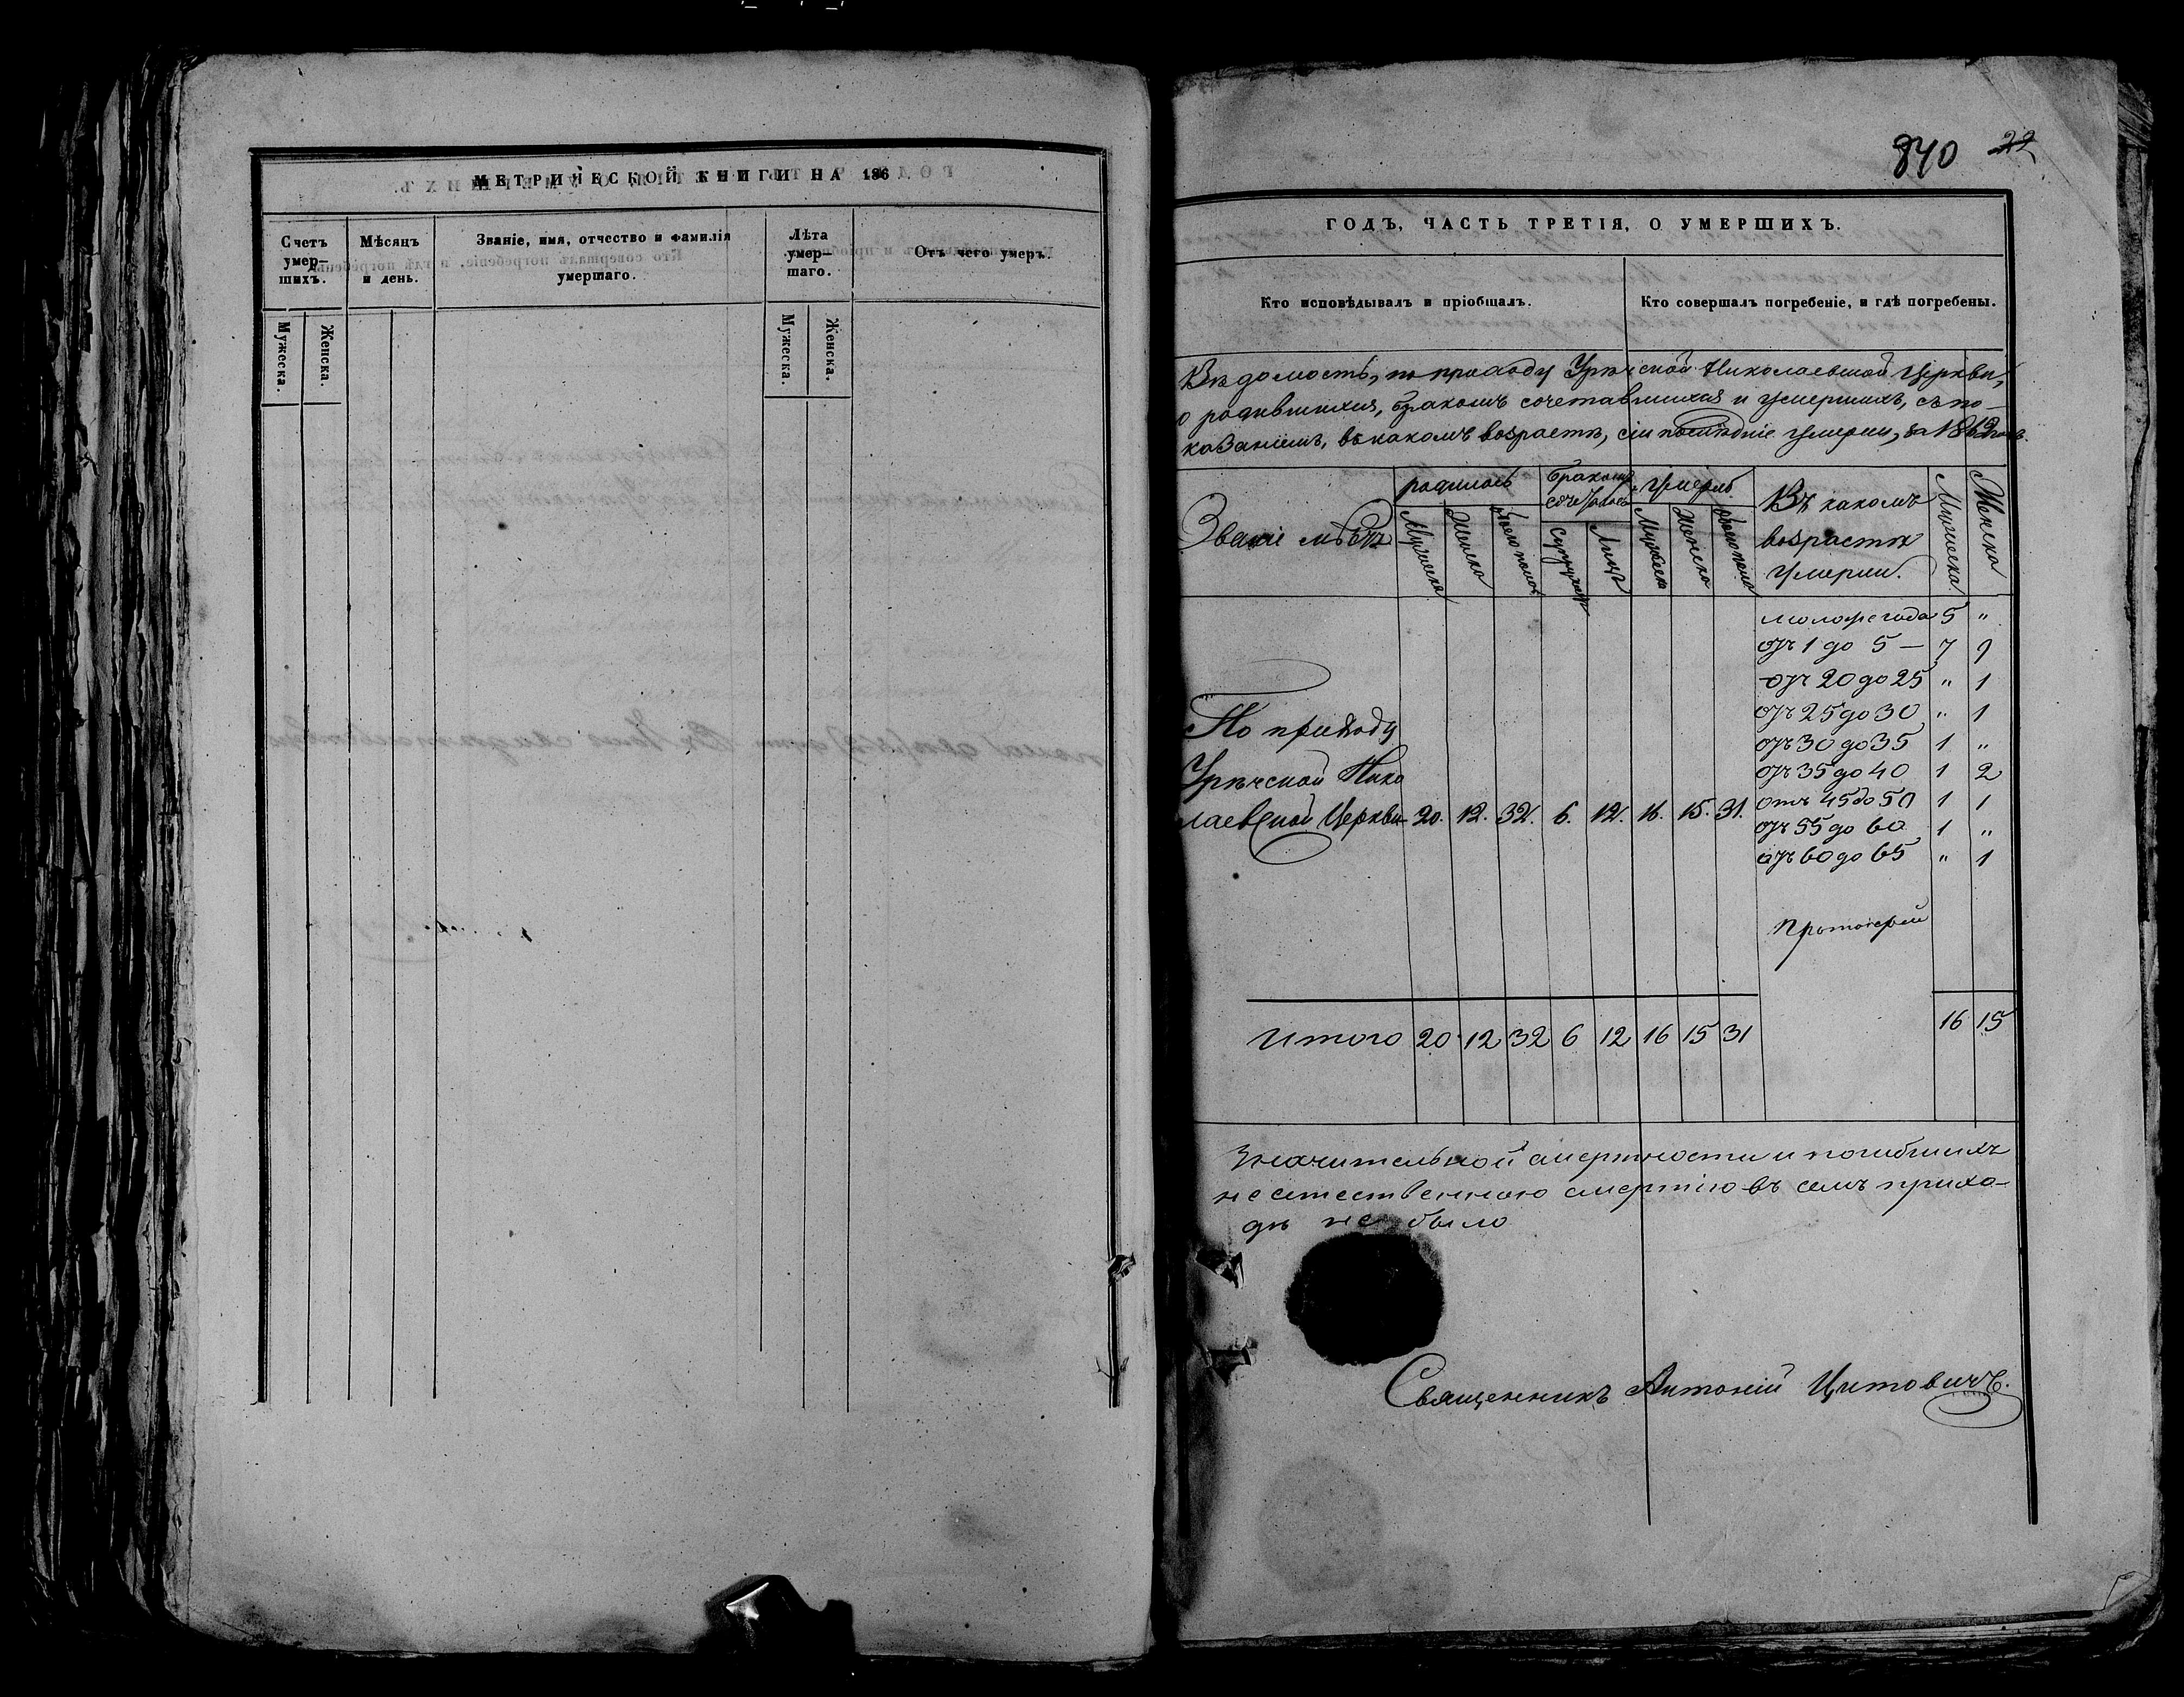 МЕТРИЧЕСКОЙ КНИГИ НА 186
Счетъ умер-шихъ.
Мѣсяцъ и день.
Званіе, имя, отчество и фамилія умершаго.
Лѣта умер-шаго.
Отъ чего умеръ.
Мужеска. Женска.
Мужеска. Женска.
840 22
ГОДЪ, ЧАСТЬ ТРЕТІЯ, О УМЕРШИХЪ.
Кто исповѣдывалъ и пріобщалъ.
Кто совершалъ погребеніе, и гдѣ погребены.
Вѣдомость, по приходу Урѣчской Николаевской Церкви,
о родившихся, бракомъ сочетавшихся и умершихъ, съ по-
казаніемъ, въ какомъ возрастѣ, сіи послѣдніе умерли, за 1862
Званіе мѣстъ
родилось
бракомъ сочеталось
умерло
Въ какомъ возрастѣ умерли.
Мужеска Женска
Мужеска Женска обоего пола Супружествъ Лицъ Мужеска Женска обоего пола
моложе года 5 "
отъ 1 до 5 — 7 9
отъ 20 до 25 " 1
отъ 25 до 30 " 1
отъ 30 до 35 1 "
отъ 35 до 40 1 2
отъ 45 до 50 1 1
отъ 55 до 60 1 "
отъ 60 до 65 " 1
По приходу
Урѣчской Нико
лаевской Церкви 20. 12. 32. 6. 12. 16. 15. 31.
Протоіерей
Итого 20 12 32 6 12 16 15 31 16 15
Значительной смертности и погибшихъ
не естественною смертію въ семъ прихо-
дѣ не было
Священникъ Антоній Цитовичъ.